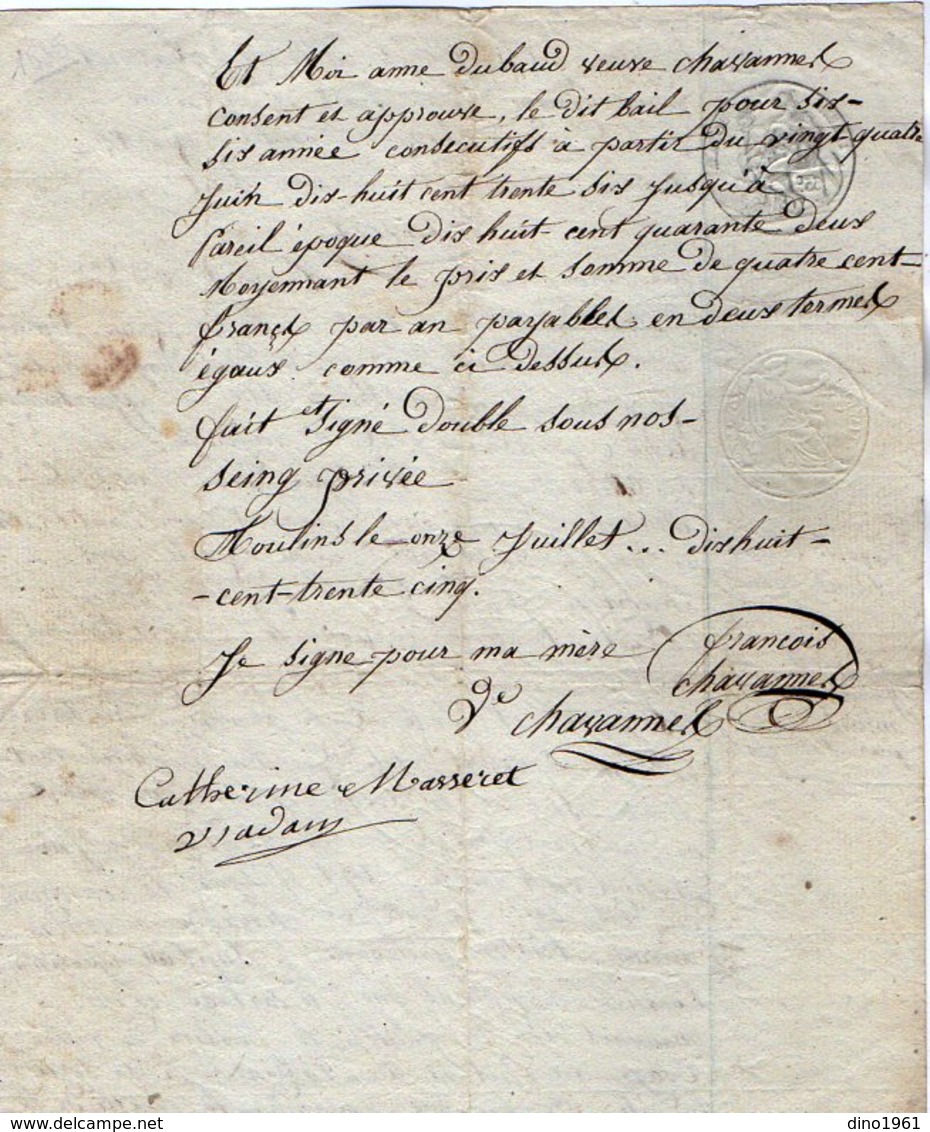 Et Moi anne dubaud veuve chavannes
consent et approuve, le dit bail pour six-
six année consecutifs à partir du vingt-quatre
Juin dix-huit cent trente six Jusqu'à
Pareil époque dix huit-cent quarante deux
Moyennant le prix et somme de quatre cent-
françs par an payables en deux termes
égaux comme ci dessus.
fait et signé double sous nos-
seing privée
Moulins le onze Juillet... dix huit-
-cent-trente cinq.
Je signe pour ma mère francois
chavannes
Ve chavannes
Catherine Masseret
delcampe.net
dino1961